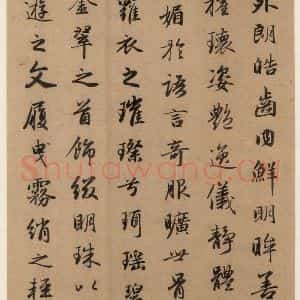 外朗皓齒内鮮明眸善
權瓌姿艷逸儀靜體
媚於語言奇服曠世骨
羅衣之璀璨兮珥瑤碧
金翠之首飾綴明珠以
遊之文履曳霧綃之輕
Shufawang.Cn